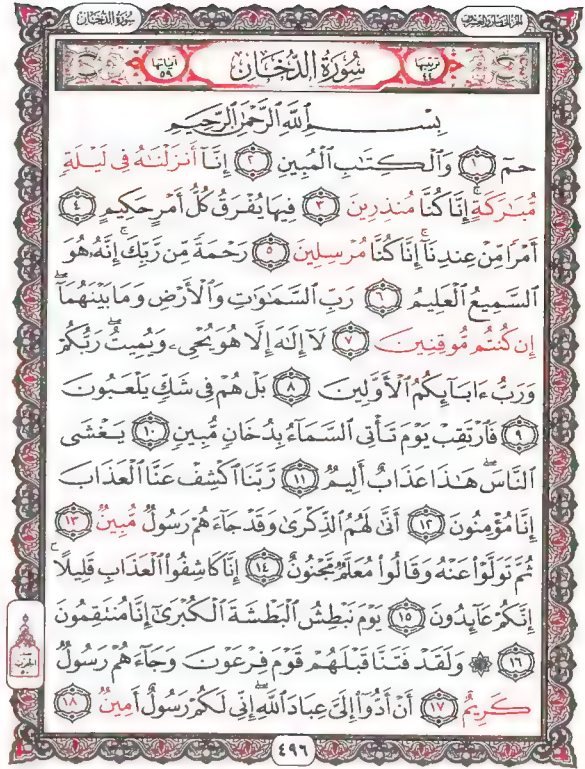 الجزء الخامس والعشرون
سُورَةُ الدُّخَان
ترتيبها ٤٤ سُورَةُ الدُّخَانِ آياتها ٥٩
بِسْمِ ٱللَّهِ ٱلرَّحْمَٰنِ ٱلرَّحِيمِ
حمٓ ١ وَٱلْكِتَٰبِ ٱلْمُبِينِ ٢ إِنَّآ أَنزَلْنَٰهُ فِى لَيْلَةٍ
مُّبَٰرَكَةٍ ۚ إِنَّا كُنَّا مُنذِرِينَ ٣ فِيهَا يُفْرَقُ كُلُّ أَمْرٍ حَكِيمٍ ٤
أَمْرًا مِّنْ عِندِنَآ ۚ إِنَّا كُنَّا مُرْسِلِينَ ٥ رَحْمَةً مِّن رَّبِّكَ ۚ إِنَّهُۥ هُوَ
ٱلسَّمِيعُ ٱلْعَلِيمُ ٦ رَبِّ ٱلسَّمَٰوَٰتِ وَٱلْأَرْضِ وَمَا بَيْنَهُمَآ ۖ
إِن كُنتُم مُّوقِنِينَ ٧ لَآ إِلَٰهَ إِلَّا هُوَ يُحْىِۦ وَيُمِيتُ ۖ رَبُّكُمْ
وَرَبُّ ءَابَآئِكُمُ ٱلْأَوَّلِينَ ٨ بَلْ هُمْ فِى شَكٍّ يَلْعَبُونَ
٩ فَٱرْتَقِبْ يَوْمَ تَأْتِى ٱلسَّمَآءُ بِدُخَانٍ مُّبِينٍ ١٠ يَغْشَى
ٱلنَّاسَ ۖ هَٰذَا عَذَابٌ أَلِيمٌ ١١ رَّبَّنَا ٱكْشِفْ عَنَّا ٱلْعَذَابَ
إِنَّا مُؤْمِنُونَ ١٢ أَنَّىٰ لَهُمُ ٱلذِّكْرَىٰ وَقَدْ جَآءَهُمْ رَسُولٌ مُّبِينٌ ١٣
ثُمَّ تَوَلَّوْا۟ عَنْهُ وَقَالُوا۟ مُعَلَّمٌ مَّجْنُونٌ ١٤ إِنَّا كَاشِفُوا۟ ٱلْعَذَابِ قَلِيلًا ۚ
إِنَّكُمْ عَآئِدُونَ ١٥ يَوْمَ نَبْطِشُ ٱلْبَطْشَةَ ٱلْكُبْرَىٰٓ إِنَّا مُنتَقِمُونَ
١٦ ۞ وَلَقَدْ فَتَنَّا قَبْلَهُمْ قَوْمَ فِرْعَوْنَ وَجَآءَهُمْ رَسُولٌ
كَرِيمٌ ١٧ أَنْ أَدُّوٓا۟ إِلَىَّ عِبَادَ ٱللَّهِ ۖ إِنِّى لَكُمْ رَسُولٌ أَمِينٌ ١٨
الحزب
٤٩٦